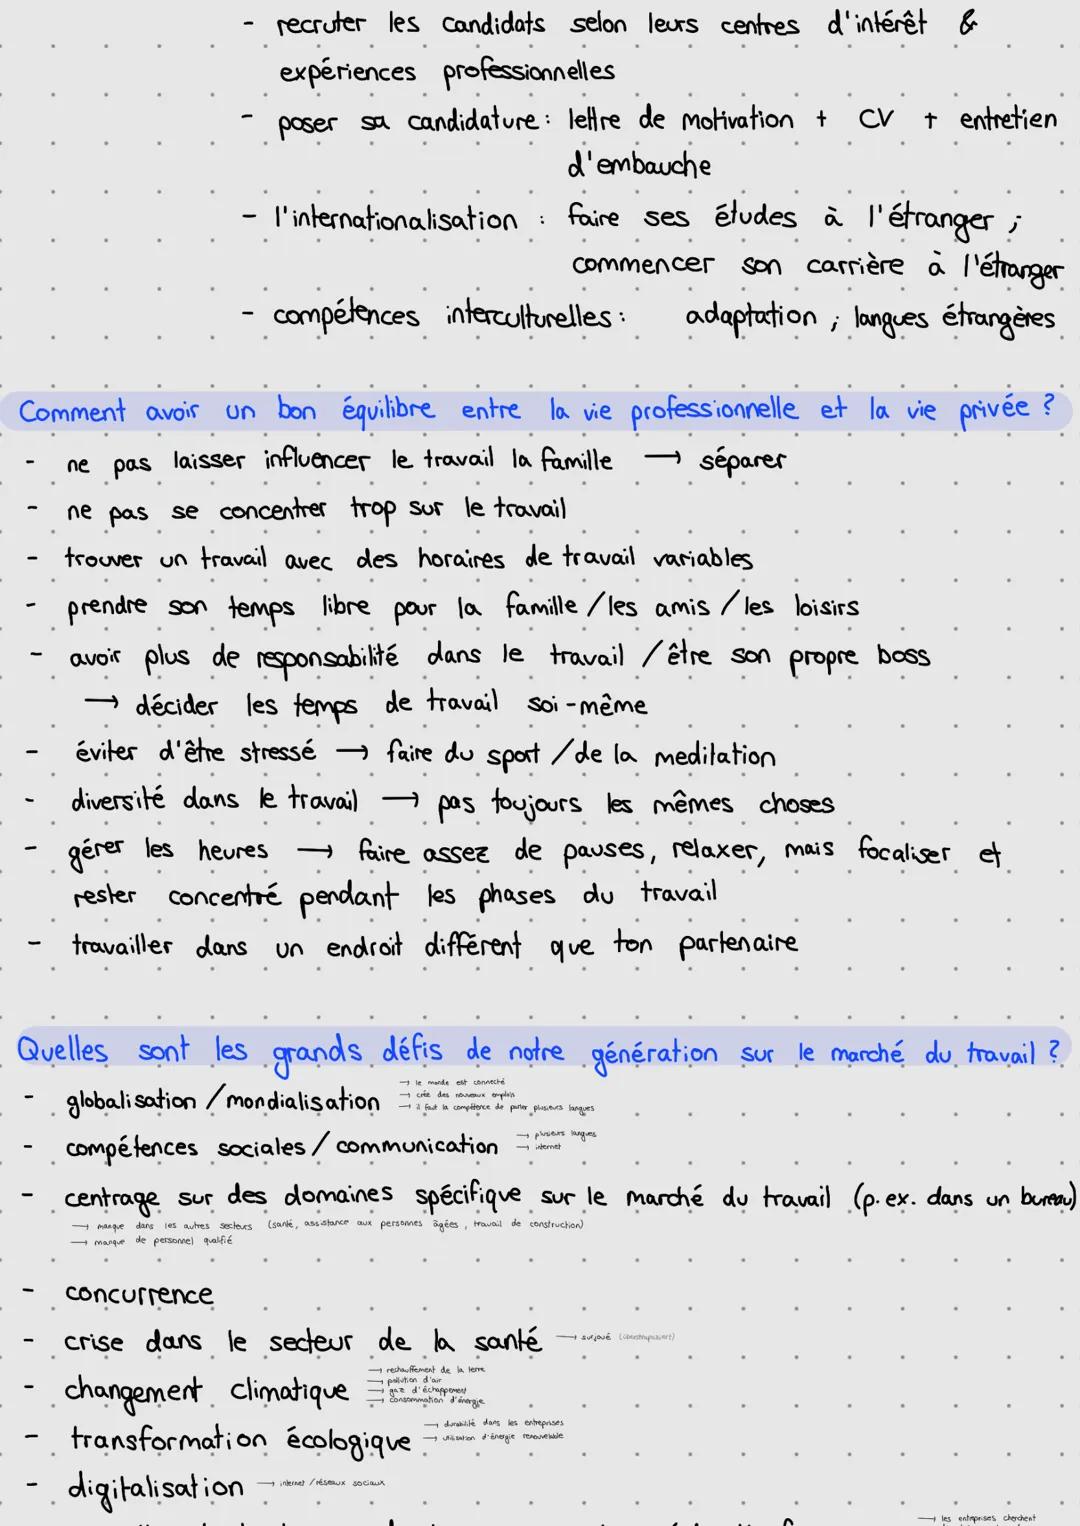 - recruter les candidats selon leurs centres d'intérêt &
expériences professionnelles
- poser sa candidature : lettre de motivation + CV + entretien
d'embauche
- l'internationalisation : faire ses études à l'étranger ;
commencer son carrière à l'étranger
- compétences interculturelles : adaptation ; langues étrangères
Comment avoir un bon équilibre entre la vie professionnelle et la vie privée ?
- ne pas laisser influencer le travail la famille → séparer
- ne pas se concentrer trop sur le travail
- trouver un travail avec des horaires de travail variables
- prendre son temps libre pour la famille / les amis / les loisirs
- avoir plus de responsabilité dans le travail / être son propre boss
→ décider les temps de travail soi-même
- éviter d'être stressé → faire du sport / de la meditation
- diversité dans le travail → pas toujours les mêmes choses
- gérer les heures → faire assez de pauses, relaxer, mais focaliser et
rester concentré pendant les phases du travail
- travailler dans un endroit différent que ton partenaire
Quelles sont les grands défis de notre génération sur le marché du travail ?
- globalisation / mondialisation
→ le monde est connecté
→ crée des nouveaux emplois
→ il faut la compétence de parler plusieurs langues
- compétences sociales / communication
→ plusieurs langues
→ internet
- centrage sur des domaines spécifique sur le marché du travail (p. ex. dans un bureau)
→ manque dans les autres secteurs (santé, assistance aux personnes âgées, travail de construction)
→ manque de personnel qualifié
- concurrence
- crise dans le secteur de la santé → surjoué
- changement climatique
→ réchauffement de la terre
→ pollution d'air
→ gaz d'échappement
→ consommation d'énergie
- transformation écologique
→ durabilité dans les entreprises
→ utilisation d'énergie renouvelable
- digitalisation → internet / réseaux sociaux
→ les entreprises cherchent